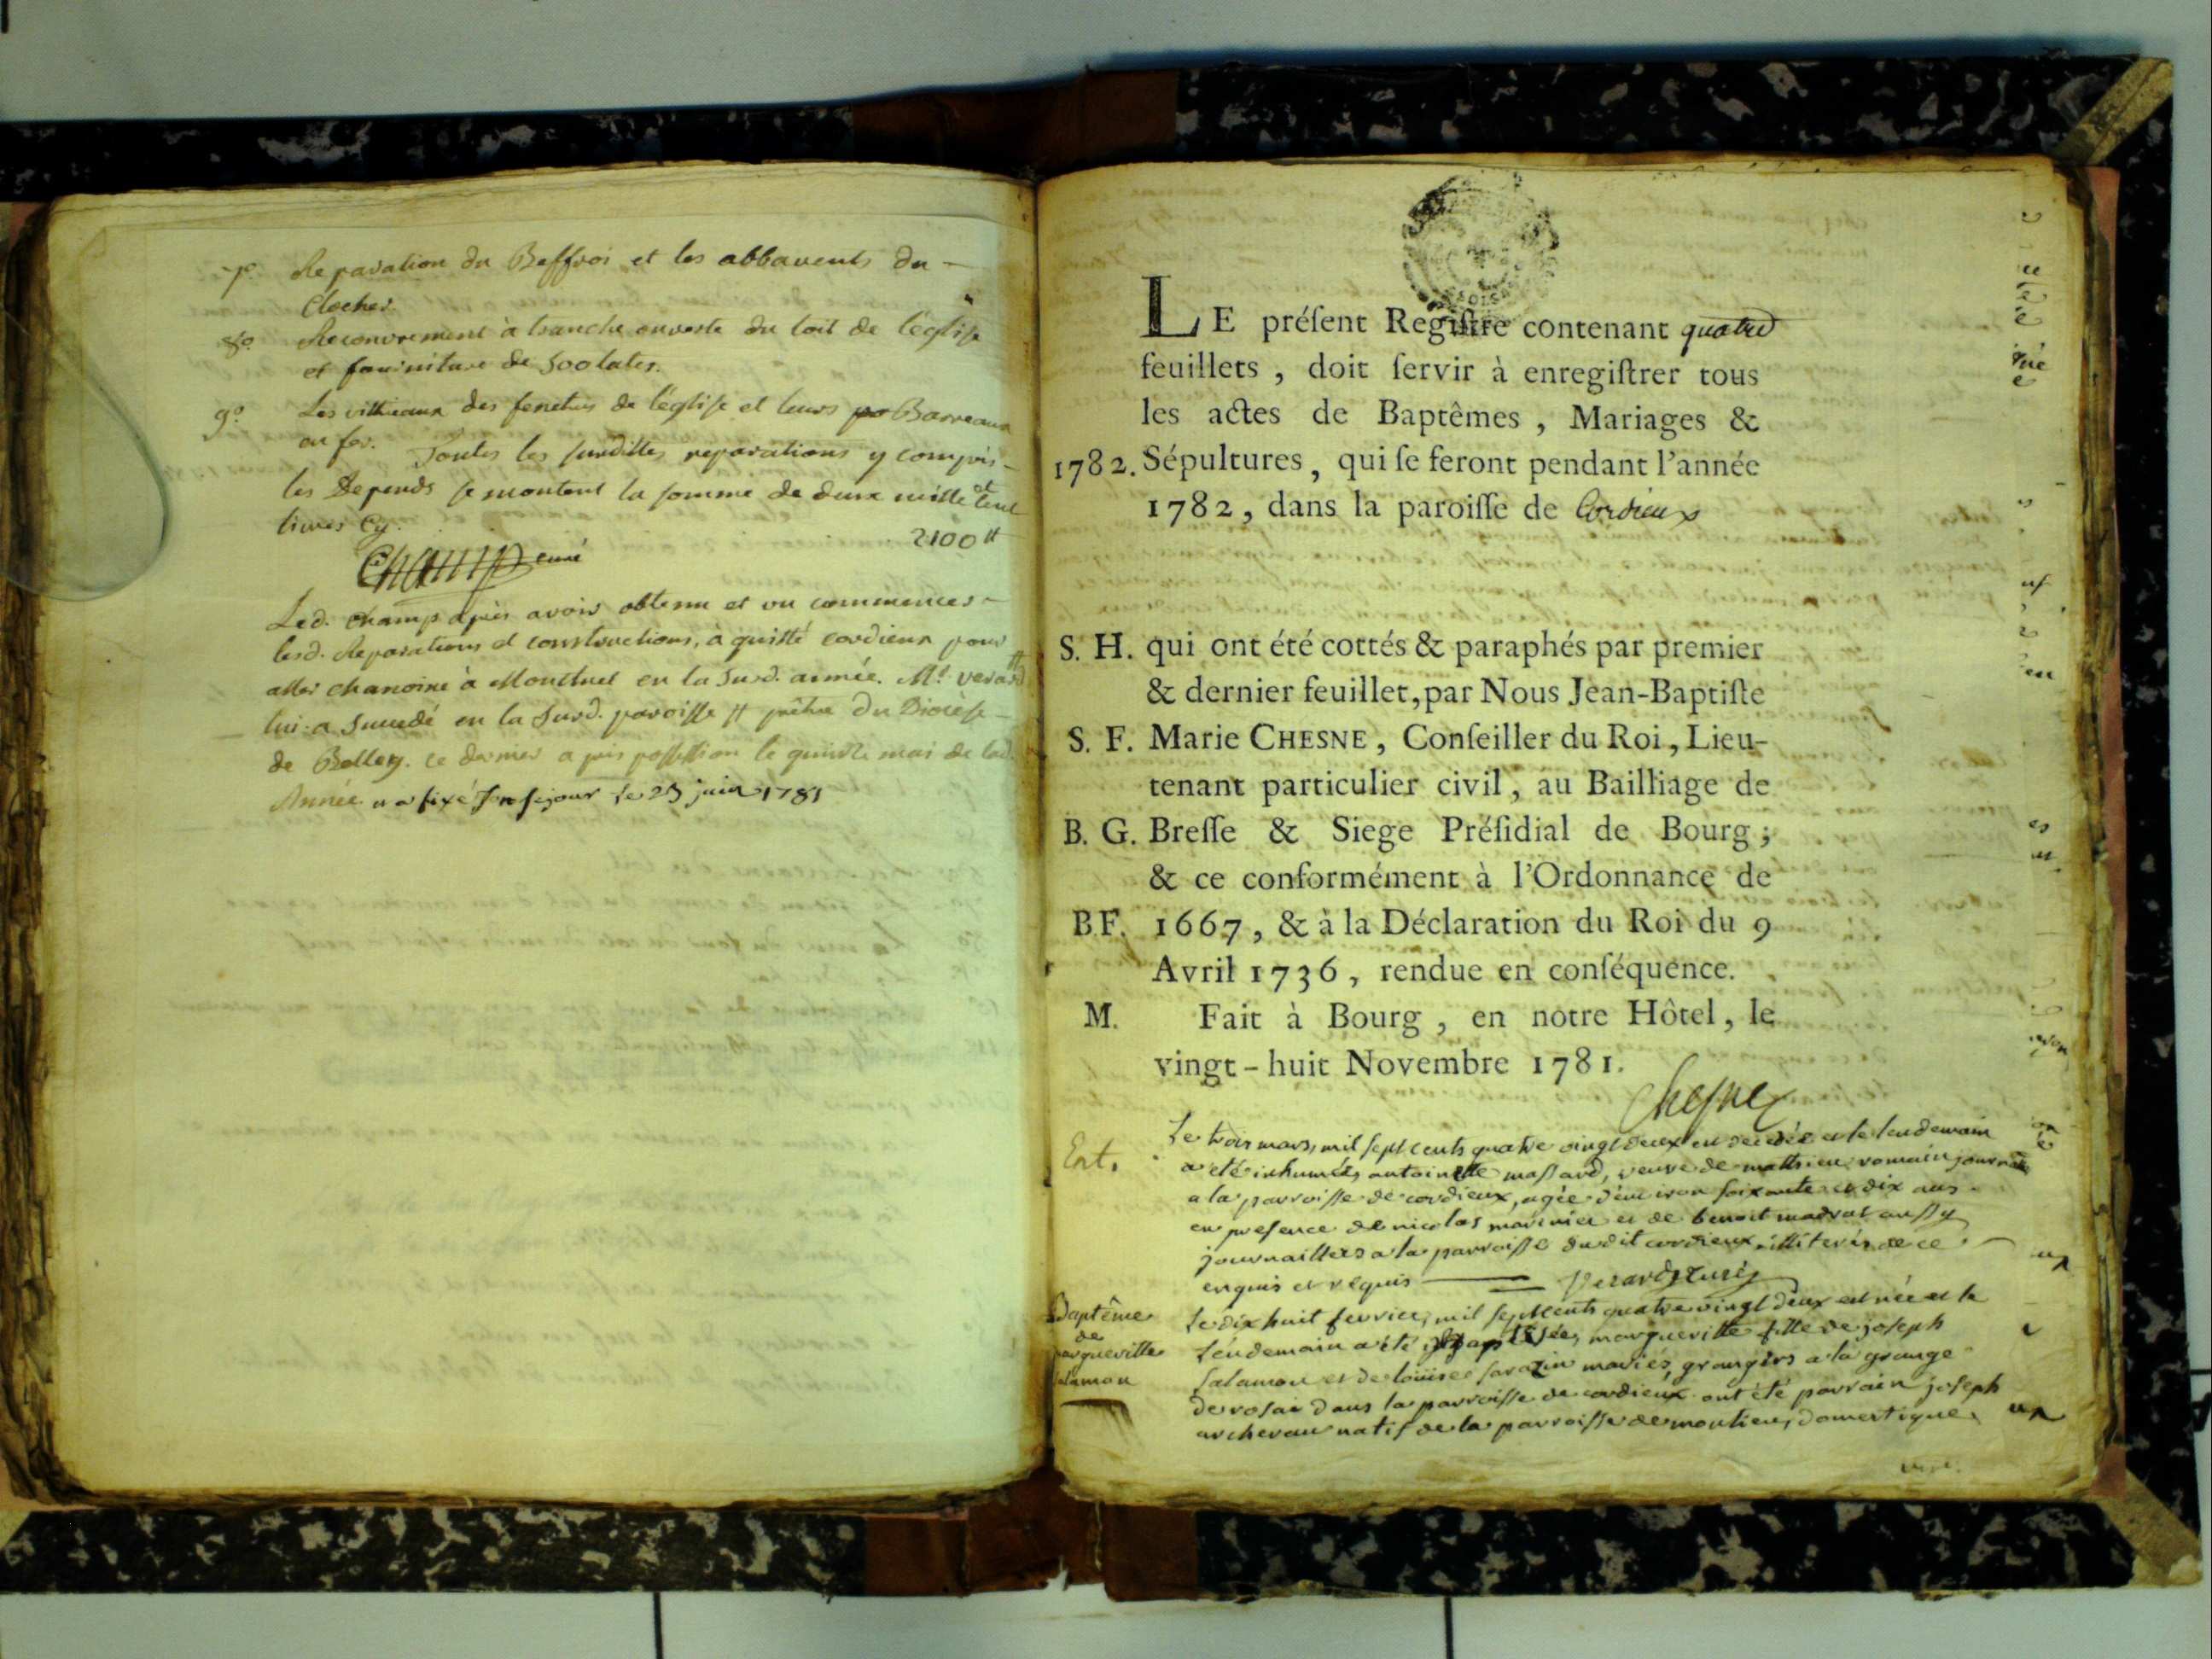 7º. Reparation du Beffroi et les abbavents du –
Clocher.
8º. Recouvrement à tranche ouverte du toit de l'église
et fourniture de 500 lates.
9º. Les vitreaux des fenetres de l'église et leurs Barreaux
en fer. Toutes les susdittes reparations y compris –
les Depends se montent la somme de deux mille et cent
livres Cy. 2100 ₶
Champ curé
Led. champ après avoir obtenu et vu commencer –
lesd. Reparations et constructions, à quitté cordieux pour
aller chanoine à Montluel en la Susd. année. Mr. verard
lui a Succedé en la Susd. paroisse # prêtre du Diocèse –
de Belley. ce dernier a pris possession le quinze mai de lad.
Année. # a fixé son sejour le 23 juin 1781
LE préſent Regiſtre contenant quatre
feuillets, doit ſervir à enregiſtrer tous
les actes de Baptêmes, Mariages &
1782. Sépultures, qui ſe feront pendant l'année
1782, dans la paroiſſe de Cordieux
S. H. qui ont été cottés & paraphés par premier
& dernier feuillet, par Nous Jean-Baptiſte
S. F. Marie CHESNE, Conſeiller du Roi, Lieu-
tenant particulier civil, au Bailliage de
B. G. Breſſe & Siege Préſidial de Bourg;
& ce conformément à l'Ordonnance de
B.F. 1667, & à la Déclaration du Roi du 9
Avril 1736, rendue en conſéquence.
M. Fait à Bourg, en notre Hôtel, le
vingt-huit Novembre 1781.
Chesne
Ent. Le trois mars, mil sept cents quatre vingt deux est decedée et le lendemain
a été inhumée, antoinette massard, veuve de mathieu romain journalr
a la parroisse de cordieux, agée d'environ soixante et dix ans.
en presence de nicolas marinier et de benoit madras aussy
journailliers a la parroisse dudit cordieux illiterés de ce
enquis et requis — Verard curé
Baptême Le dix huit fevrier, mil sept cents quatre vingt deux est née et le
de lendemain a été baptisée, margueritte fille de joseph
margueritte salamon et de louise sarazin mariés, grangers a la grange
salamon de rosai dans la parroisse de cordieux ont été parrain joseph
archerau natif de la parroisse de montieu, domestique